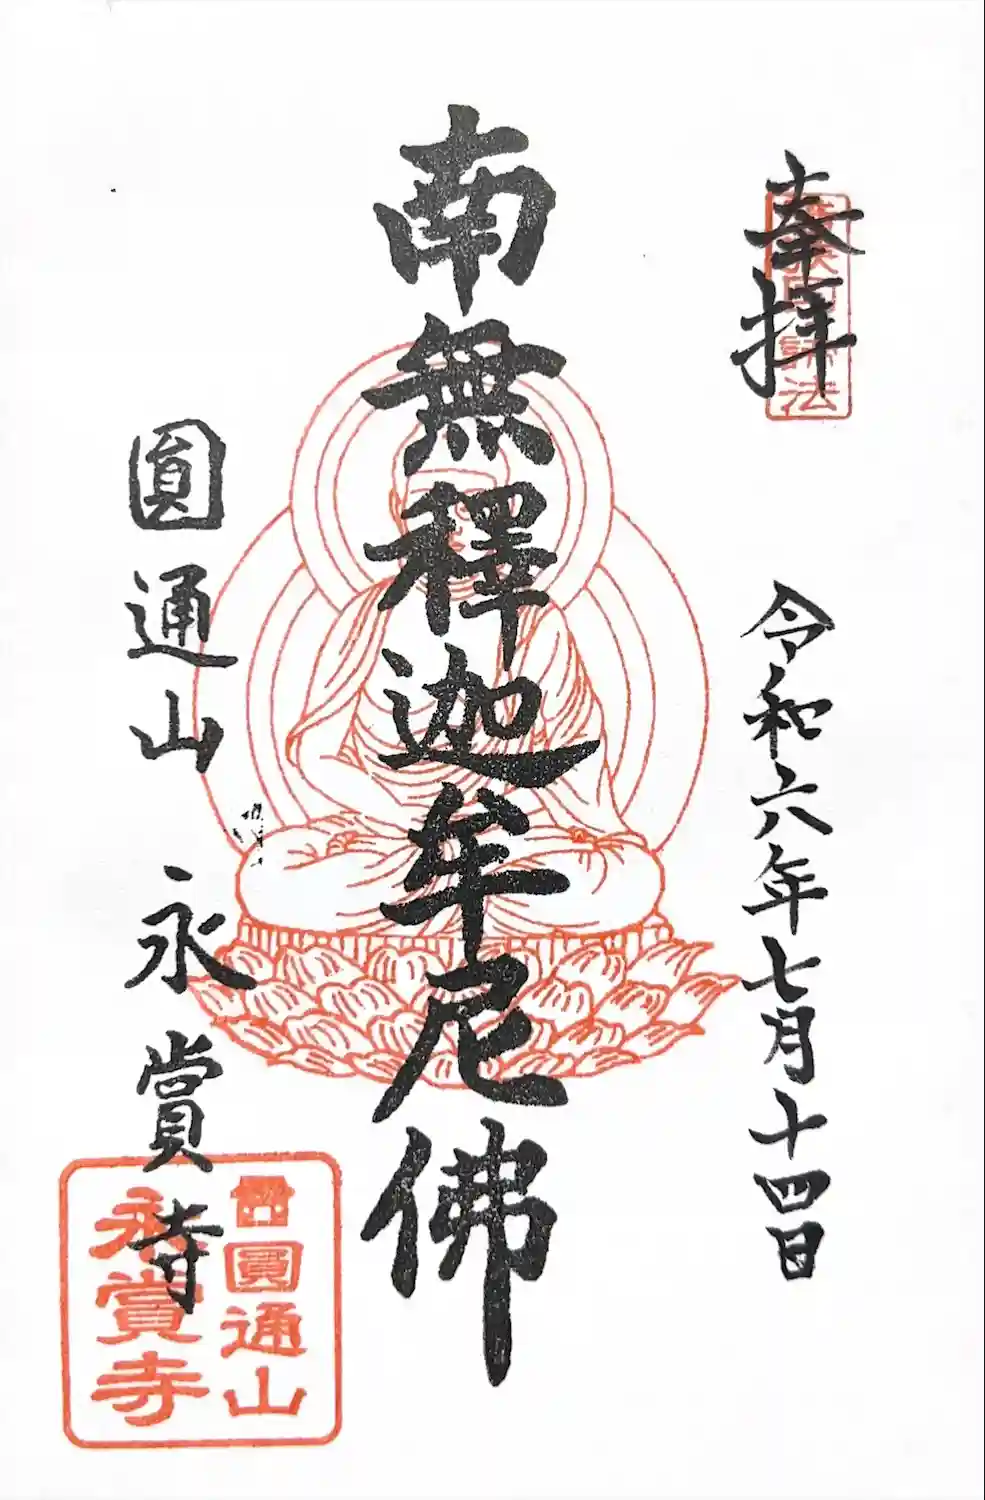 奉拝
令和六年七月十四日
南無釋迦牟尼佛
圓通山 永賞寺
圓通山
永賞寺